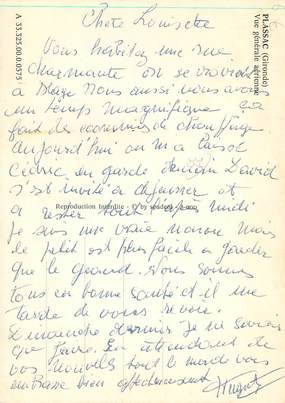 Chère Louisette
Vous habitez une rue
charmante on se croirait
à Blaye Nous aussi nous avons
un temps magnifique ça
fait des économies de chauffage
Aujourd'hui on m'a laissé
Cédric en garde demain David
s'est invité à déjeuner et
à rester tout l'après midi
Je suis une vraie maman mais
le petit est plus facile à garder
que le grand. Nous sommes
tous en bonne santé et il me
tarde de vous revoir.
Dimanche dernier je ne savais
que faire. En attendant de
vos nouvelles tout le monde vous
embrasse bien affectueusement
PLASSAC (Gironde)
Vue générale aérienne
A 33.325.00.0.0375
Reproduction Interdite - © by